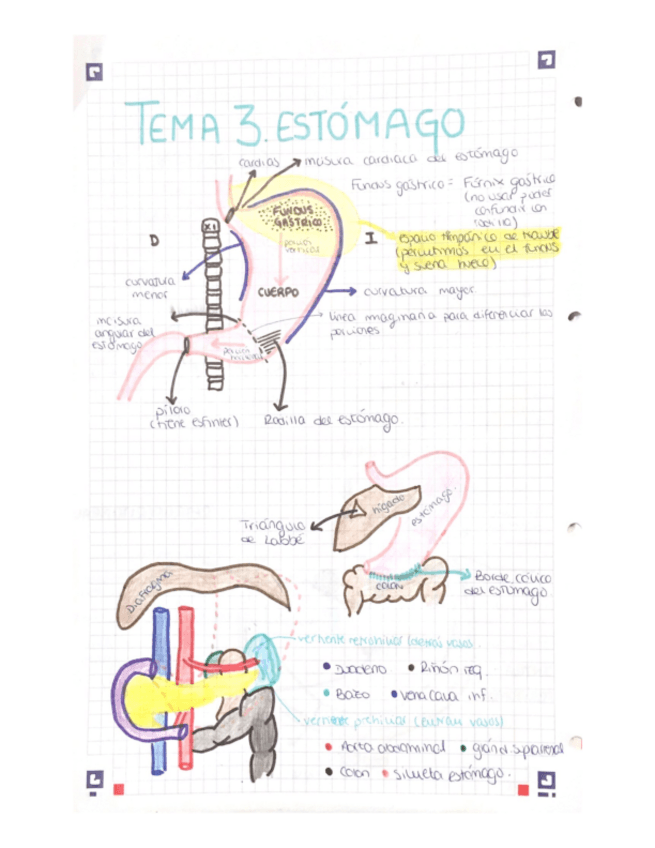 TEMA 3. ESTÓMAGO
cardias
incisura cardiaca del estómago
Fundus gástrico = Fórnix gástrico
(no usar, puede
confundir con
FUNDUS
GÁSTRICO
XI
D
I
porción
vertical
espacio timpánico de traube
(percutimos en el fundus
y suena hueco)
curvatura
menor
CUERPO
curvatura mayor
incisura
angular del
estómago
línea imaginaria para diferenciar las
porciones
porción
píloro
(tiene esfínter)
Rodilla del estómago.
hígado
estómago.
Triángulo
de Labbé
COLON
Borde cólico
del estómago
Diafragma
vertiente retrohiliar (detrás vasos)
Duodeno
Riñón izq.
Bazo
vena cava inf.
vertiente prehiliar (entran vasos)
Aorta abdominal
glánd. suprarrenal
Colon
silueta estómago.